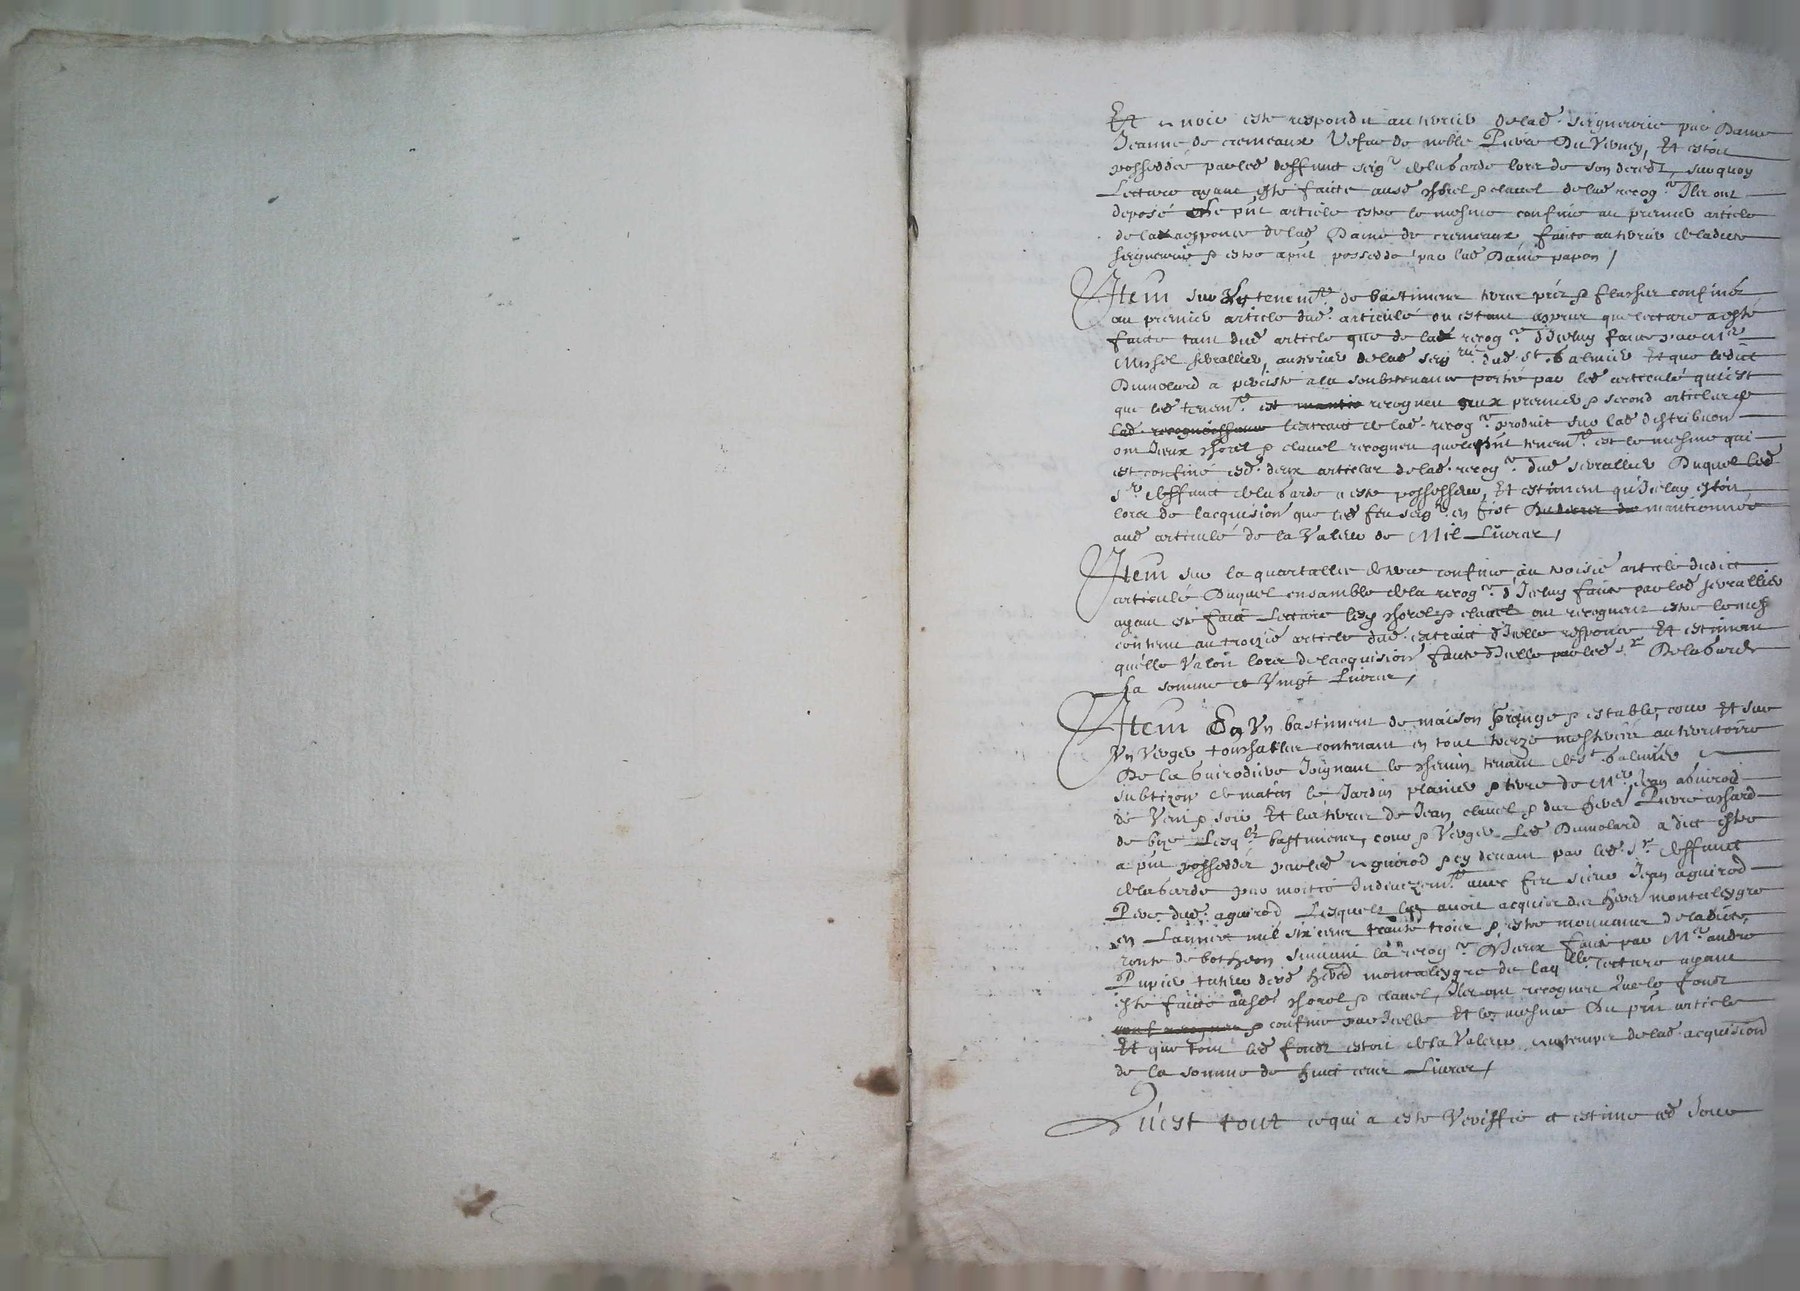 Et a voir este respondu au terrier delad. seigneurie par Dame
Jeanne de cremeaux Vefve de noble Pierre Du Verney, Et estoit
possedée par led deffunt seigr delabarde lors de son deced, sur quoy
Lecture ayant esté faitte ausd Chorel & clavel delad recogr Ils ont
deposé q le pnt article estre le mesme confiné au premier article
de la responce delad Dame de cremeaux faitte au terrier eladicte
seigneurie & estre a pnt possedé par lad Dame papon /
Item sur Un tenemt de bastiment terres prés & confinés
au premier article dud. articulé ou estant apprez que lecture a esté
faitte tant dud article que de lad recogr d'Icelluy faitte par Mr
Michel sevrallier, au terrier delad seigrie dud. St Galmier Et que ledict
Dumolard a à la soubstenance portée par led articulé qui est
que led tenemt est recogneu aux premier & second articles de
lad. recognoissance lextrait delad. recogr produit sur lad distribuon
ont Iceux Chorel & clavel recogneu que le pnt tenemt est le mesme qui
est confiné esd. deux articles delad. recogr dud sevrallier Duquel led
sr deffunt delabarde a esté possesseur, Et estiment qu'Icelluy estoit
lors de lacquision que led feu seigr en fist mantionnée
aud articulé de la Valeur de Mil Livres /
Item sur la quartallée de terre confinée au troisie article dudict
articulé Duquel ensamble de la recogr d'Icelluy faitte par led sevrallier
ayant esté fait Lecture lesd Chorel & clavel ont recogneu estre le mes
contenu au troizie article dud. extraict d'Icelle responce Et estiment
qu'elle Valoit lors de lacquision faitte d'Icelle par led sr Delabarde
La somme de Vingt Livres /
Item En Un bastiment de maison grange & estable, cour Et sur
Un Verger contenant en tout treize au territoire
De la Joignant le Chemin tenant de St Galmier
de matin le Jardin & terre de Mre Jean aguirod
de Vent & soir Et les terres de Jean clavel & des hers Pierre
de bize Lesqls bastiment, cour & Verger Led Dumolard a dict estre
a pnt possedés par led aguirod & cy devant par led. sr deffunt
delabarde par moitié Indivizemt avec feu sieur Jean aguirod
Pere dud. aguirod Lesquels avoit acquis des hers montaleygre
en Lannée mil six cent trante trois & estre mouvant de ladicte
rente de botheon suivant la recogr D'Iceux faitte par Mr andre
Pupier tuteur desd hers montaleygre de laqlle lecture ayant
esté faitte ausd Chorel & clavel, Ils ont recogneu que le fond
& confiné par Icelle Et le mesme Du pnt article
Et que tout led fondz estoit de la Valeur au temps delad acquision
de la somme de huict cent Livres /
Qu'est tout ce qui a esté Veriffié et estimé ced Jour